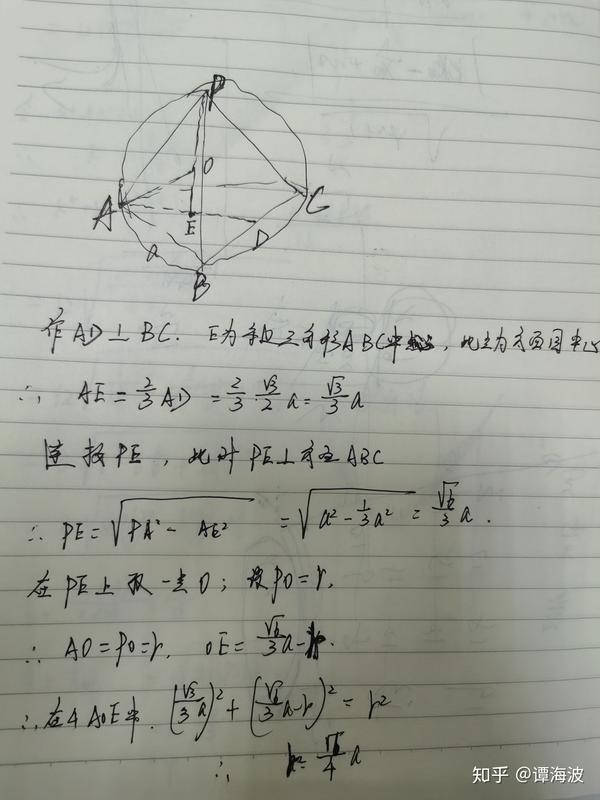 P
O
A
C
E
D
a
B
作AD⊥BC. E为等边三角形ABC中心, 此点为方面图中心
∴ AE=2/3AD=2/3·√3/2a=√3/3a
连接PE, 此时PE⊥方面ABC
∴ PE=√(PA²-AE²)=√(a²-1/3a²)=√6/3a.
在PE上取一点O; 设PO=r,
∴ AO=PO=r, OE=√6/3a-r.
∴在△AOE中. (√3/3a)²+(√6/3a-r)²=r²
∴ r=√6/4a
知乎 @谭海波